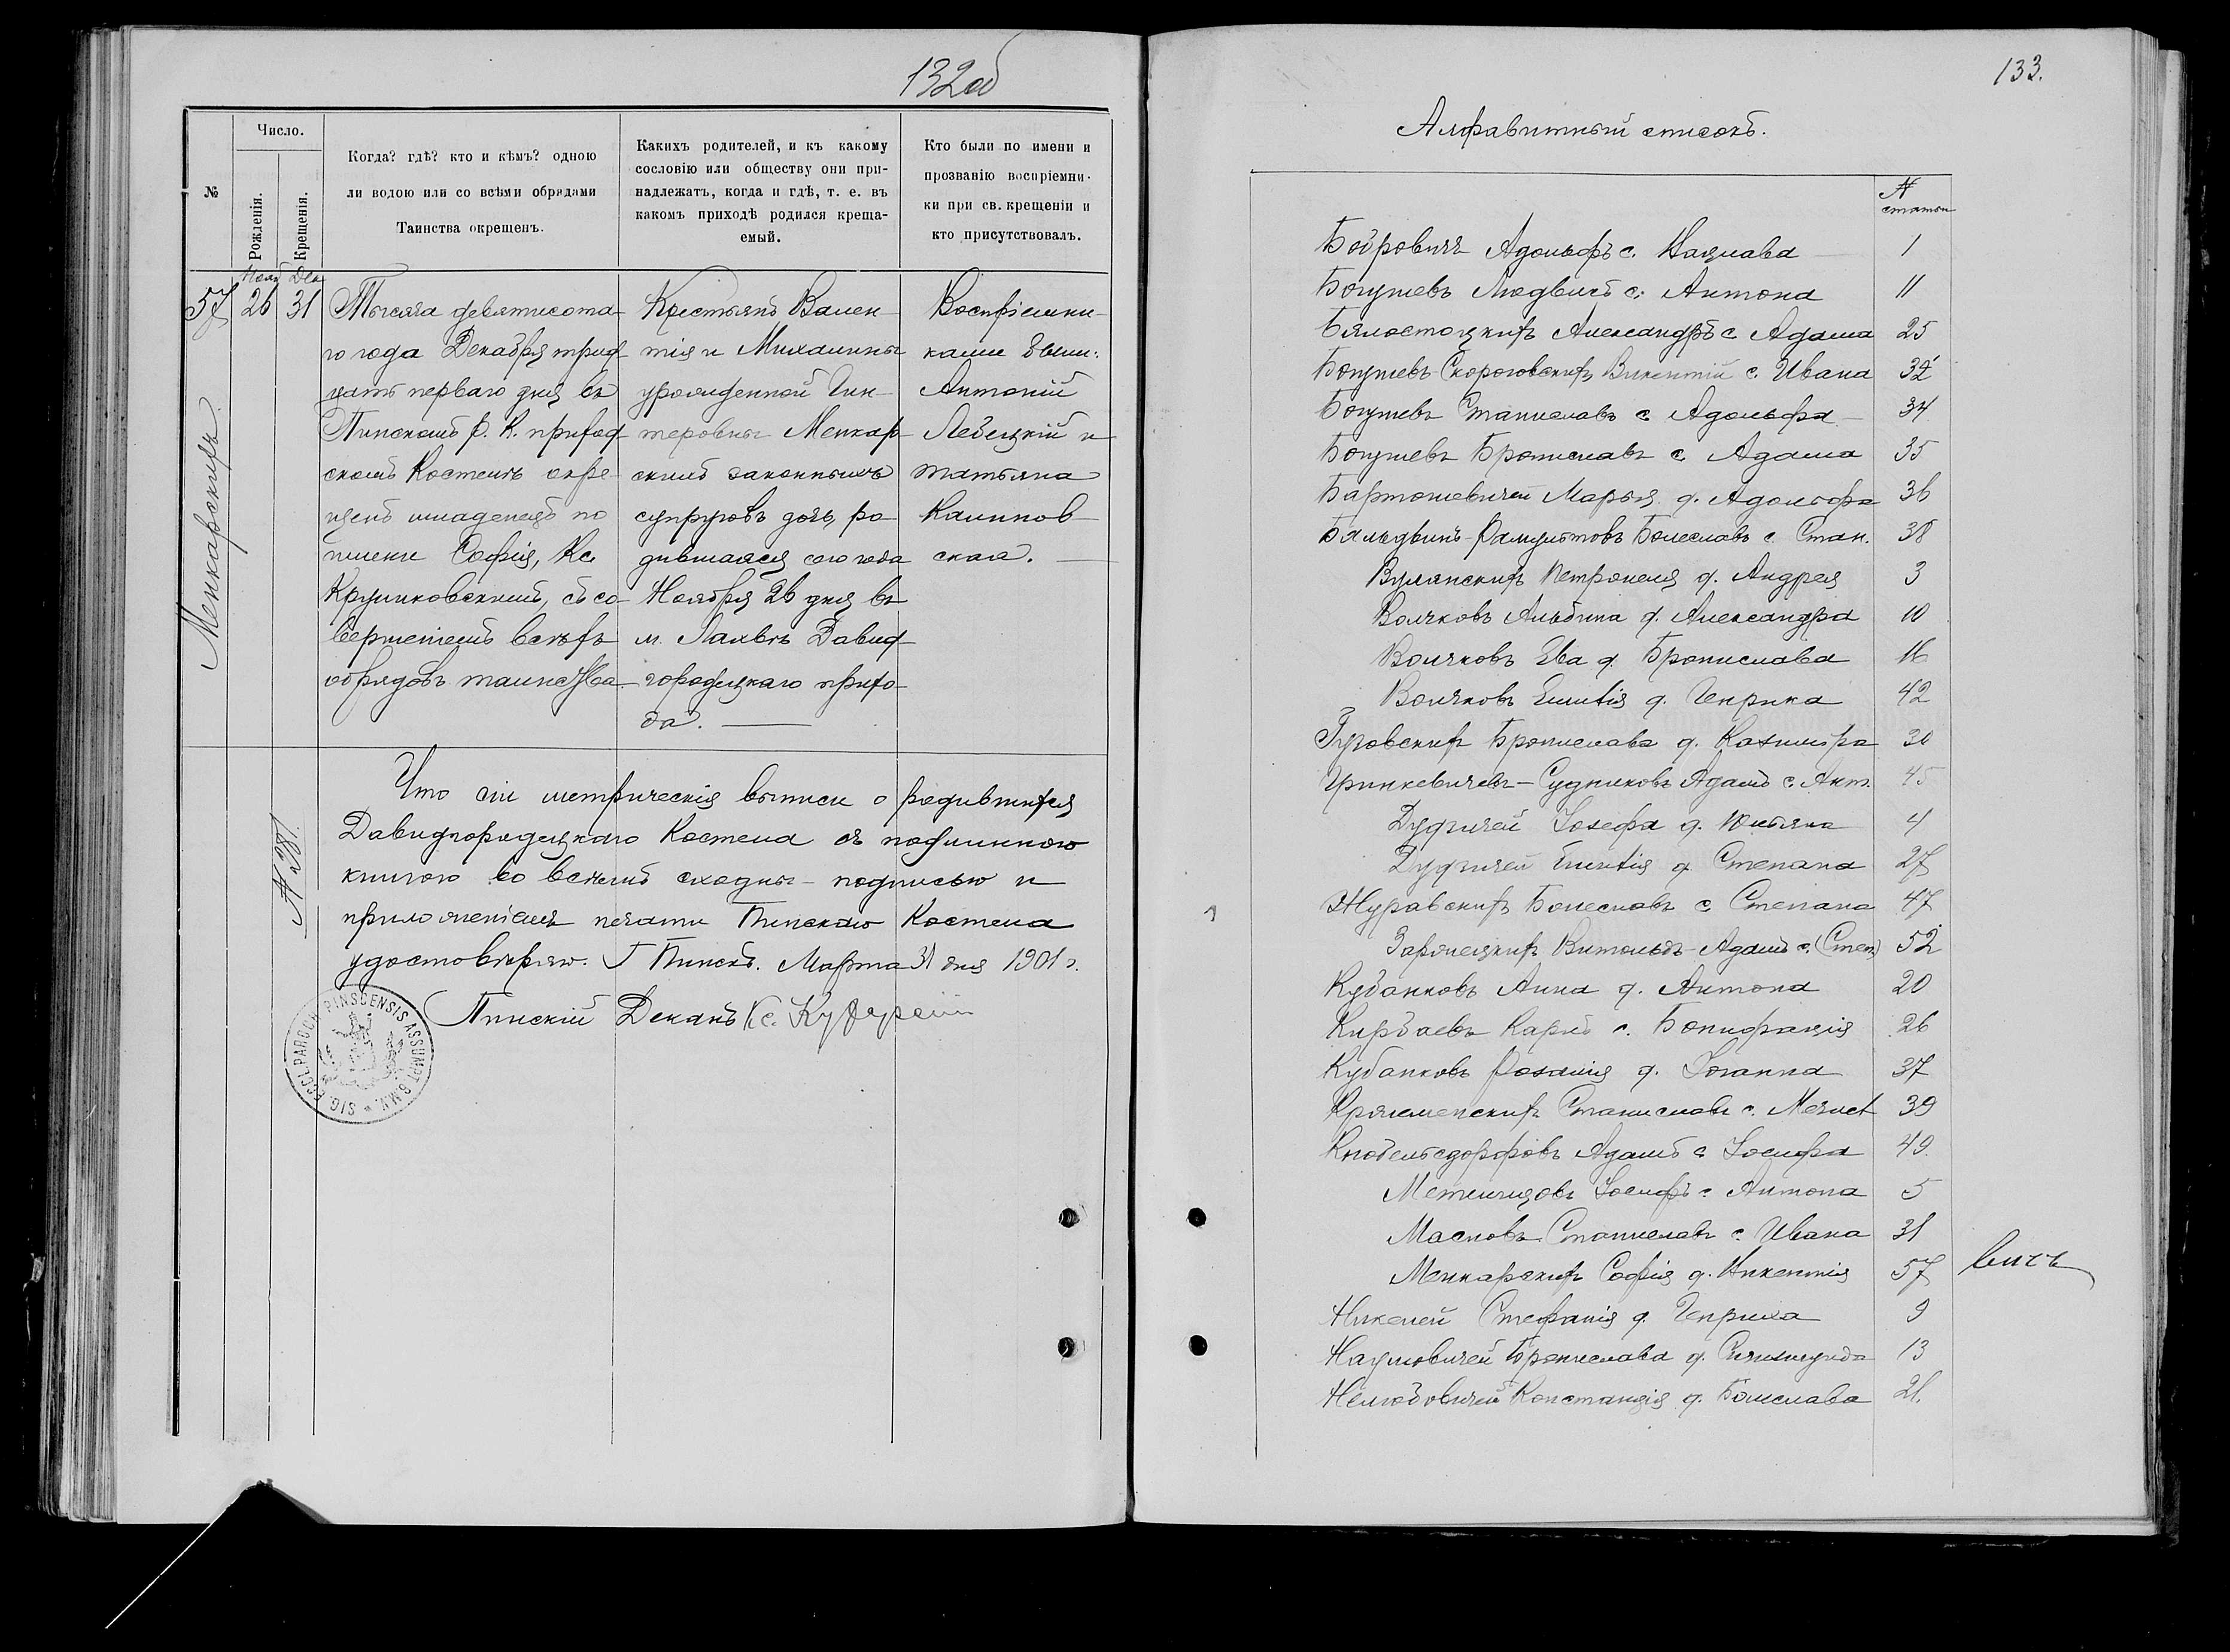 132 об
№
Число.
Рожденія.
Крещенія.
Когда? гдѣ? кто и кѣмъ? одною
ли водою или со всѣми обрядами
Таинства окрещенъ.
Какихъ родителей, и къ какому
сословію или обществу они при-
надлежатъ, когда и гдѣ, т. е. въ
какомъ приходѣ родился креща-
емый.
Кто были по имени и
прозванію воспріемни-
ки при св. крещеніи и
кто присутствовалъ.
57
Менкарскихъ
Нояб 26
Дек 31
Тысяча девятисота-
го года Декабря трид-
цать перваго дня въ
Пинскомъ Р. К. приход-
скомъ Костелѣ окре-
щенъ младенецъ по
имени Софія, Кс.
Круликовскимъ, съ со-
вершеніемъ всѣхъ
обрядовъ таинства.
Крестьянъ Вален-
тія и Михалины
урожденной Гин-
теровны Менкар-
скихъ законныхъ
супруговъ дочь, ро-
дившаяся сего года
Ноября 26 дня въ
м. Лахвѣ Давид-
городецкаго прихо-
да.
Воспріемни-
ками были:
Антоній
Лебецкій и
Татьяна
Калинов-
ская.
№ 281.
Что сіи метрическія выписи о родившихся
Давидгородецкаго Костела съ подлинною
книгою во всемъ сходны – подписью и
приложеніемъ печати Пинскаго Костела
удостовѣряю. Г Пинскъ. Марта 31 дня 1901 г.
Пинскій Деканъ Кс.
SIG. ECCL. PAROCH. PINSCENSIS ASSUMPT. B.M.V.
133.
Алфавитный списокъ.
№ статьи
Бобровичъ Адольфъ с. Вацлава 1
Богушевъ Людвигъ с. Антона 11
Бялостоцкихъ Александръ с Адама 25
Богушевъ-Скороговскихъ Викентій с. Ивана 32
Богушевъ Станиславъ с Адольфа 34
Богушевъ Брониславъ с. Адама 35
Бартошевичей Марья д. Адольфа 36
Бальдвинъ-Рамультовъ Болеславъ с. Стан. 38
Вулянскихъ Петронеля д. Андрея 3
Волчковъ Альбина д. Александра 10
Волчковъ Ева д. Бронислава 16
Волчковъ Емилія д. Генрика 42
Гуровскихъ Бронислава д. Казиміра 30
Гринкевичевъ-Судниковъ Адамъ с. Ант. 45
Дудичей Іозефа д. Юльяна 4
Дудичей Емилія д. Степана 27
Журавскихъ Болеславъ с Степана 47
Заржецкихъ Витольдъ-Адамъ с. (Степ) 52
Кубанковъ Анна д. Антона 20
Кирбаевъ Карлъ с. Бонифація 26
Кубанковъ Розалія д. Іоганна 37
Кржеменскихъ Станиславъ с. Мечисл 39
Кнобельсдорфовъ Адамъ с Іосифа 49
Метлицовъ Іосифъ с Антона 5
Масловъ Станиславъ с. Ивана 31
Менкарскихъ Софія д. Викентія 57
Никелей Стефанія д. Генриха 9
Наумовичей Бронислава д. Сигизмунда 13
Нелюбовичей Констанція д. Болеслава 21.